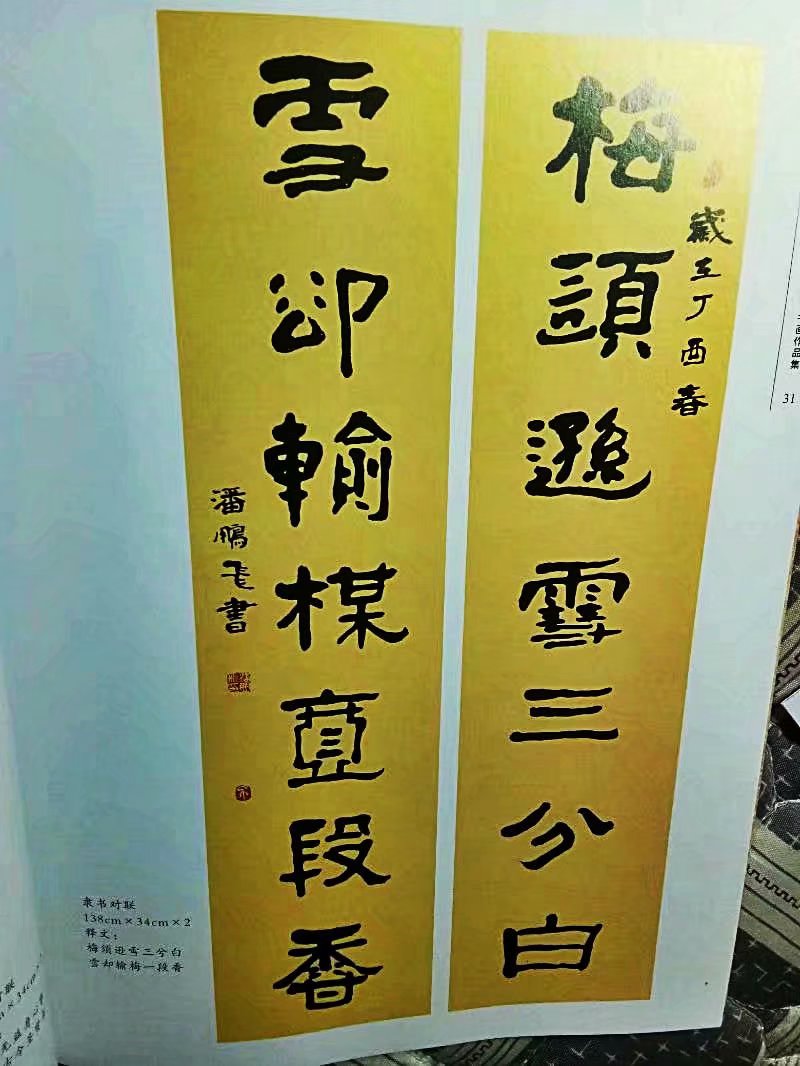 梅須遜雪三分白
歲在丁酉春
雪卻輸楳壹段香
潘鵬飛書
画作品集
31
隶书对联
138cm×34cm×2
释文：
梅须逊雪三分白
雪却输梅一段香